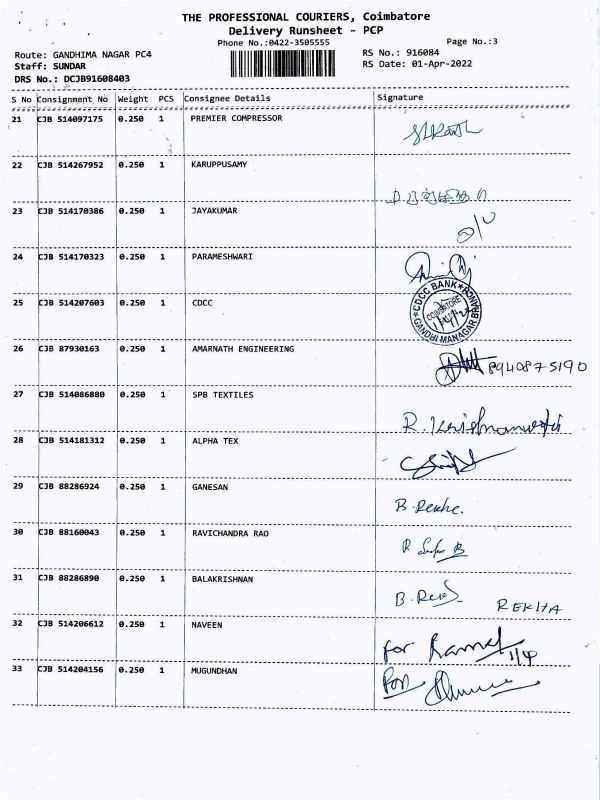 THE PROFESSIONAL COURIERS, Coimbatore
Delivery Runsheet - PCP
Phone No.:0422-3505555
Page No.:3
Route: GANDHIMA NAGAR PC4
RS No.: 916084
Staff: SUNDAR
RS Date: 01-Apr-2022
DRS No.: DCJB91608403
S No Consignment No Weight PCS Consignee Details Signature
21 CJB 514097175 0.250 1 PREMIER COMPRESSOR
22 CJB 514267952 0.250 1 KARUPPUSAMY
23 CJB 514170386 0.250 1 JAYAKUMAR
24 CJB 514170323 0.250 1 PARAMESHWARI
25 CJB 514207603 0.250 1 CDCC
CDCC BANK
COIMBATORE
GANDHI MANAGAR BRANCH
26 CJB 87930163 0.250 1 AMARNATH ENGINEERING
8940875190
27 CJB 514086880 0.250 1 SPB TEXTILES
28 CJB 514181312 0.250 1 ALPHA TEX
29 CJB 88286924 0.250 1 GANESAN
30 CJB 88160043 0.250 1 RAVICHANDRA RAO
31 CJB 88286890 0.250 1 BALAKRISHNAN
REKHA
32 CJB 514206612 0.250 1 NAVEEN
for
1/4
33 CJB 514204156 0.250 1 MUGUNDHAN